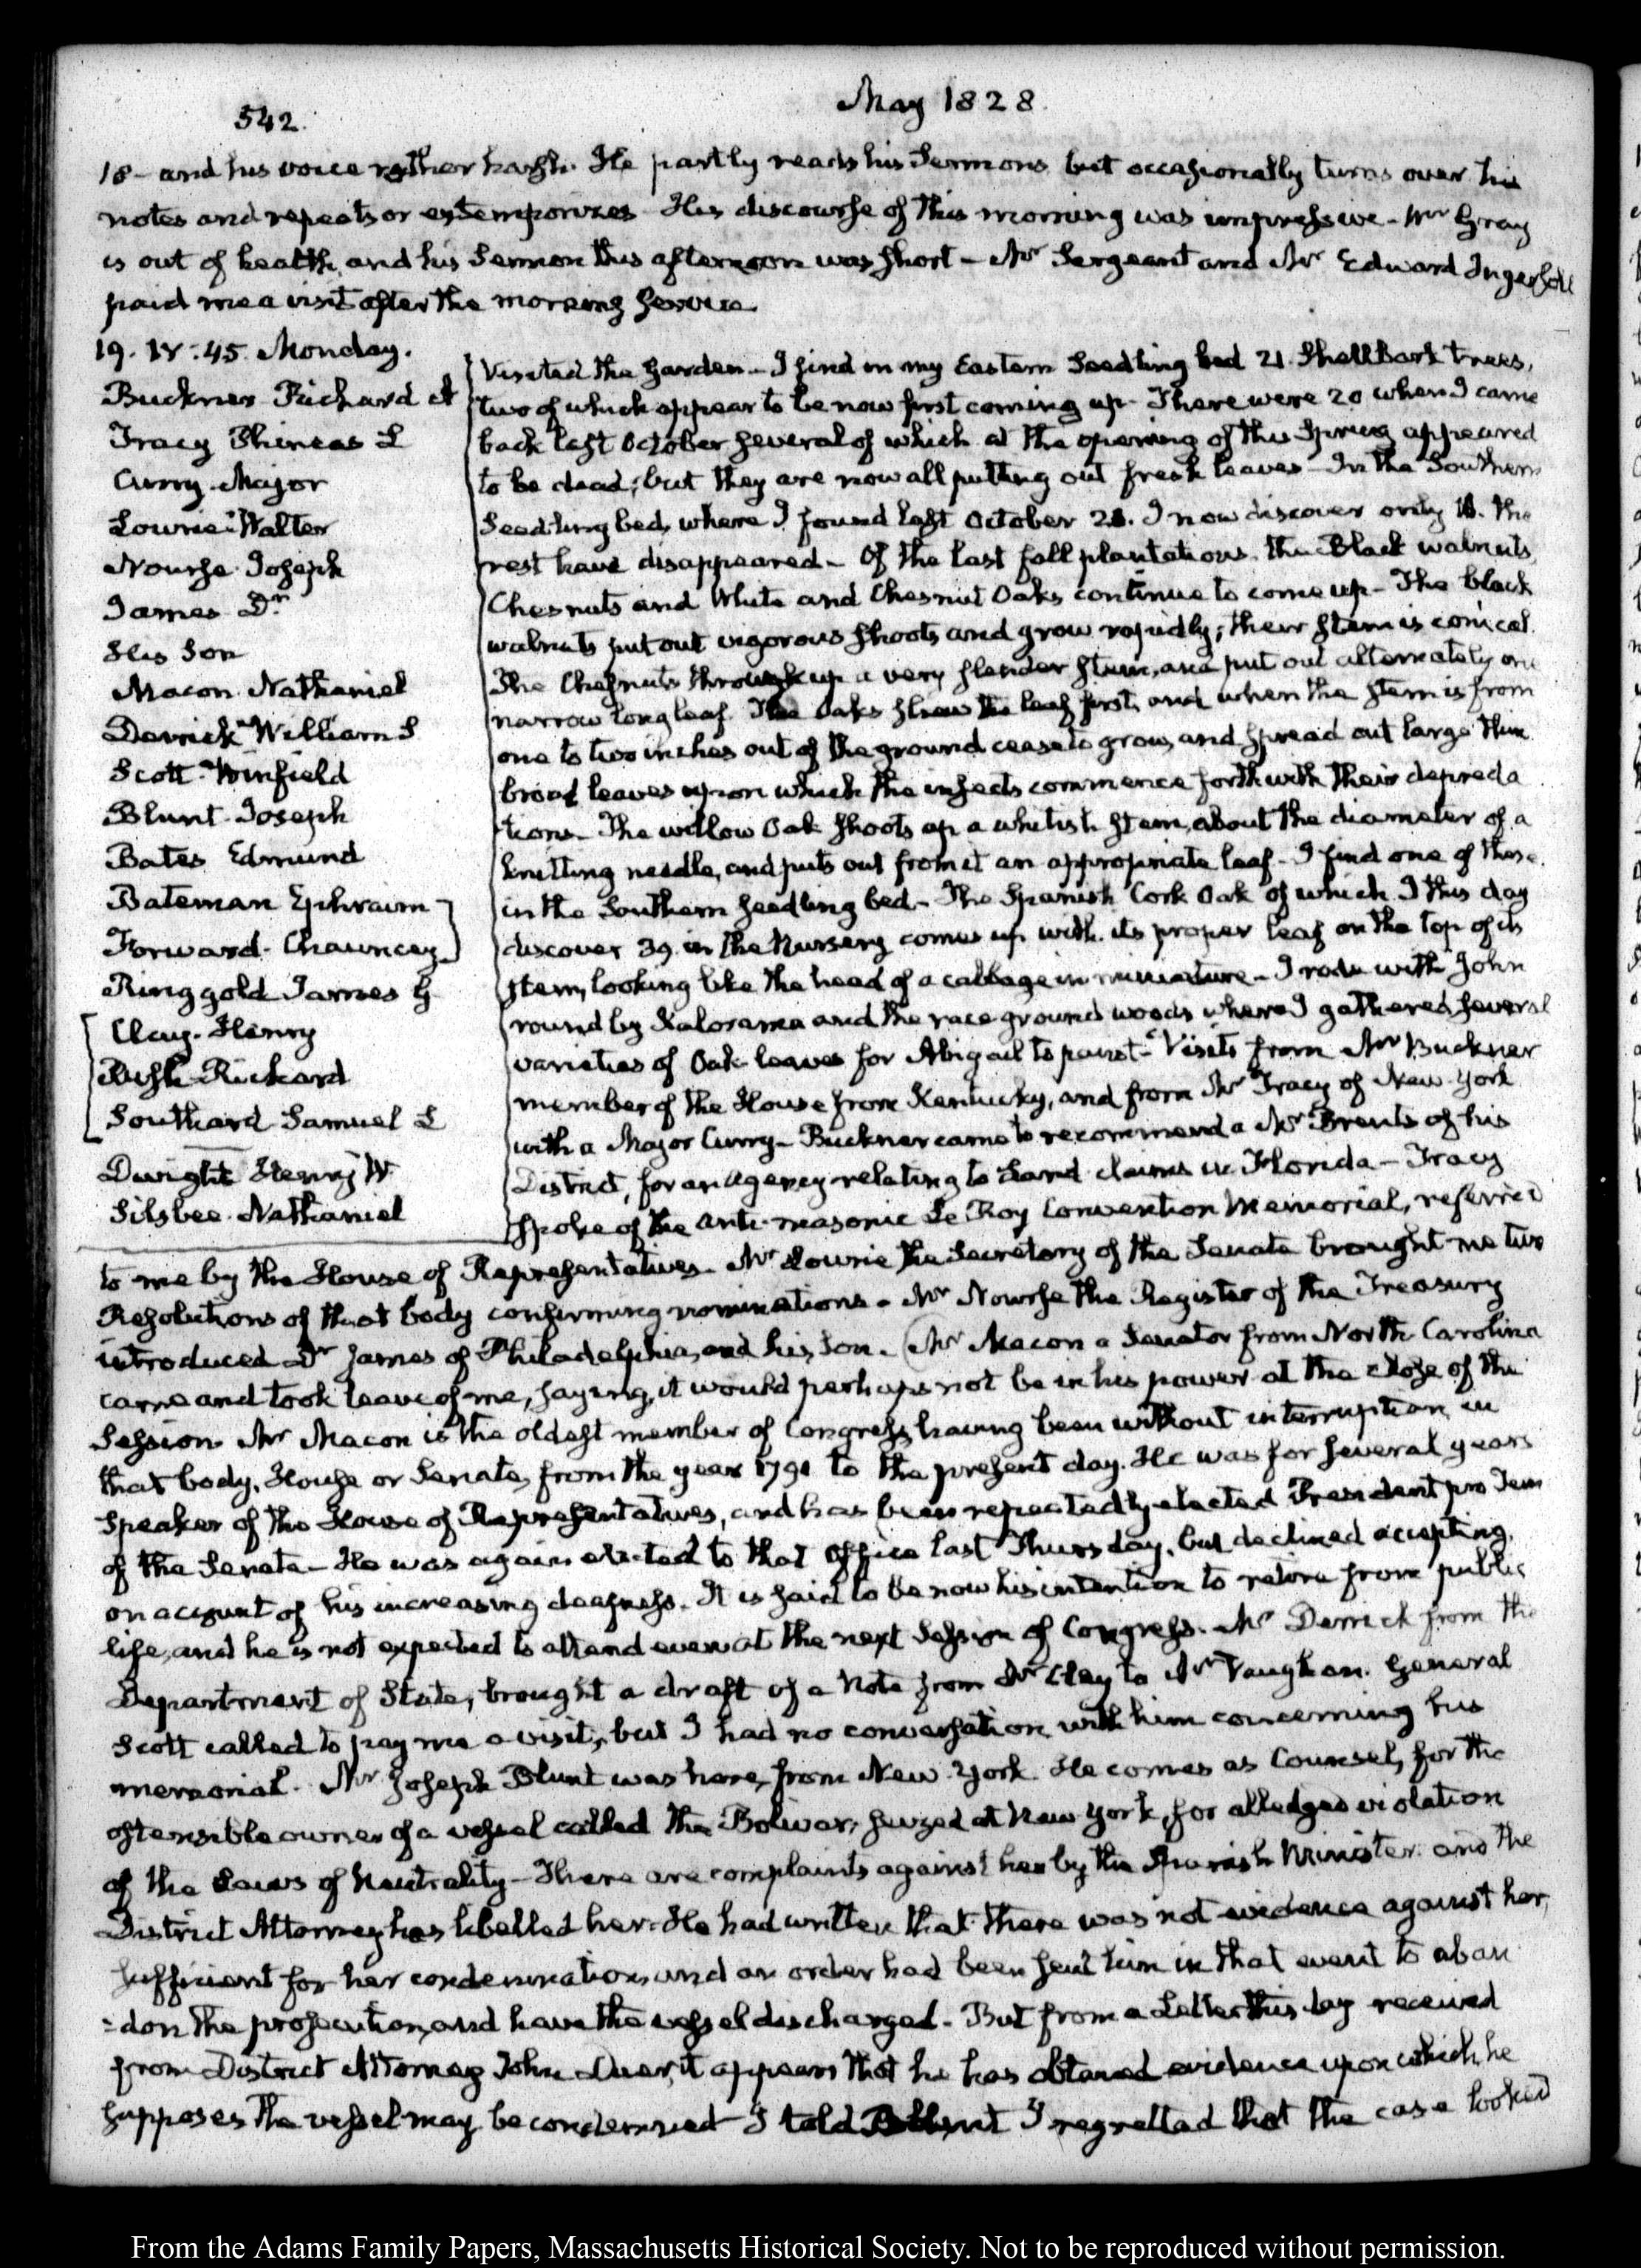 542.
May 1828.
18– and his voice rather harsh. He partly reads his Sermons but occasionally turns over his
notes and repeats or extemporizes– His discourse of this morning was impressive– Mr Gray
is out of health, and his Sermon this afternoon was short– Mr Sergeant and Mr Edward Ingersoll
paid me a visit after the morning service.
19. IV:45. Monday.
Buckner Richard A
Tracy Phineas L
Curry. Major
Lowrie. Walter
Nourse. Joseph
James Dr.
His Son
Macon. Nathaniel
Derrick William S
Scott. Winfield
Blunt. Joseph
Bates Edmund
Bateman Ephraim
Forward. Chauncey
Ringgold James G
Clay. Henry
Rush Richard
Southard Samuel L
Dwight Henry W
Silsbee. Nathaniel
Visited the garden– I find in my Eastern Seedling bed 21 Shellbark trees,
two of which appear to be now first coming up– There were 20 when I came
back last October several of which at the opening of this Spring appeared
to be dead; but they are now all putting out fresh leaves– In the Southern
Seedling bed, where I found last October 28. I now discover only 18. the
rest have disappeared– Of the last fall plantations. the Black walnuts,
Chesnuts and White and Chesnut Oaks continue to come up– The black
walnuts put out vigorous shoots and grow rapidly; their stem is conical.
The Chesnuts throw up a very slender stem, and put out alternately one
narrow long leaf. The Oaks shew the leaf first, and when the stem is from
one to two inches out of the ground cease to grow, and spread out large thin
broad leaves upon which the insects commence forthwith their depreda
tions– The willow Oak shoots up a whitish stem, about the diameter of a
knitting needle, and puts out from it an appropriate leaf– I find one of these
in the Southern seedling bed– The Spanish Cork Oak of which I this day
discover 39 in the Nursery comes up with its proper leaf on the top of its
stem, looking like the head of a cabbage in miniature– I rode with John
round by Kalorama and the race ground woods where I gathered several
varieties of Oak leaves for Abigail to paint– Visits from Mr Buckner
member of the House from Kentucky, and from Mr Tracy of New York
with a Major Curry– Buckner came to recommend a Mr Brents of his
District, for an agency relating to Land claims in Florida– Tracy
spoke of the anti-masonic Le Roy Convention Memorial, referred
to me by the House of Representatives– Mr Lowrie the Secretary of the Senate brought me two
Resolutions of that body confirming nominations– Mr Nourse the Register of the Treasury
introduced Dr James of Philadelphia, and his Son– Mr Macon a Senator from North Carolina
came and took leave of me, saying, it would perhaps not be in his power at the close of the
Session. Mr Macon is the oldest member of Congress, having been without interruption in
that body, House or Senate, from the year 1791 to the present day. He was for several years
Speaker of the House of Representatives, and has been repeatedly elected President pro Tem
of the Senate– He was again elected to that office last Thursday, but declined accepting,
on account of his increasing deafness. It is said to be now his intention to retire from public
life, and he is not expected to attend even at the next Session of Congress. Mr Derrick from the
Department of State, brought a draft of a Note from Mr Clay to Mr Vaughan. General
Scott called to pay me a visit, but I had no conversation with him concerning his
memorial. Mr Joseph Blunt was here, from New York. He comes as Counsel, for the
ostensible owner of a vessel called the Bolivar, seized at New York, for alledged violation
of the Laws of Neutrality– There are complaints against her by the Spanish Minister and the
District Attorney has libelled her. He had written that there was not evidence against her,
sufficient for her condemnation, and an order had been sent him in that event to aban
=don the prosecution, and have the vessel discharged– But from a Letter this day received
from District Attorney John Duer, it appears that he has obtained evidence upon which he
supposes the vessel may be condemned– I told Blunt I regretted that the case looked
From the Adams Family Papers, Massachusetts Historical Society. Not to be reproduced without permission.